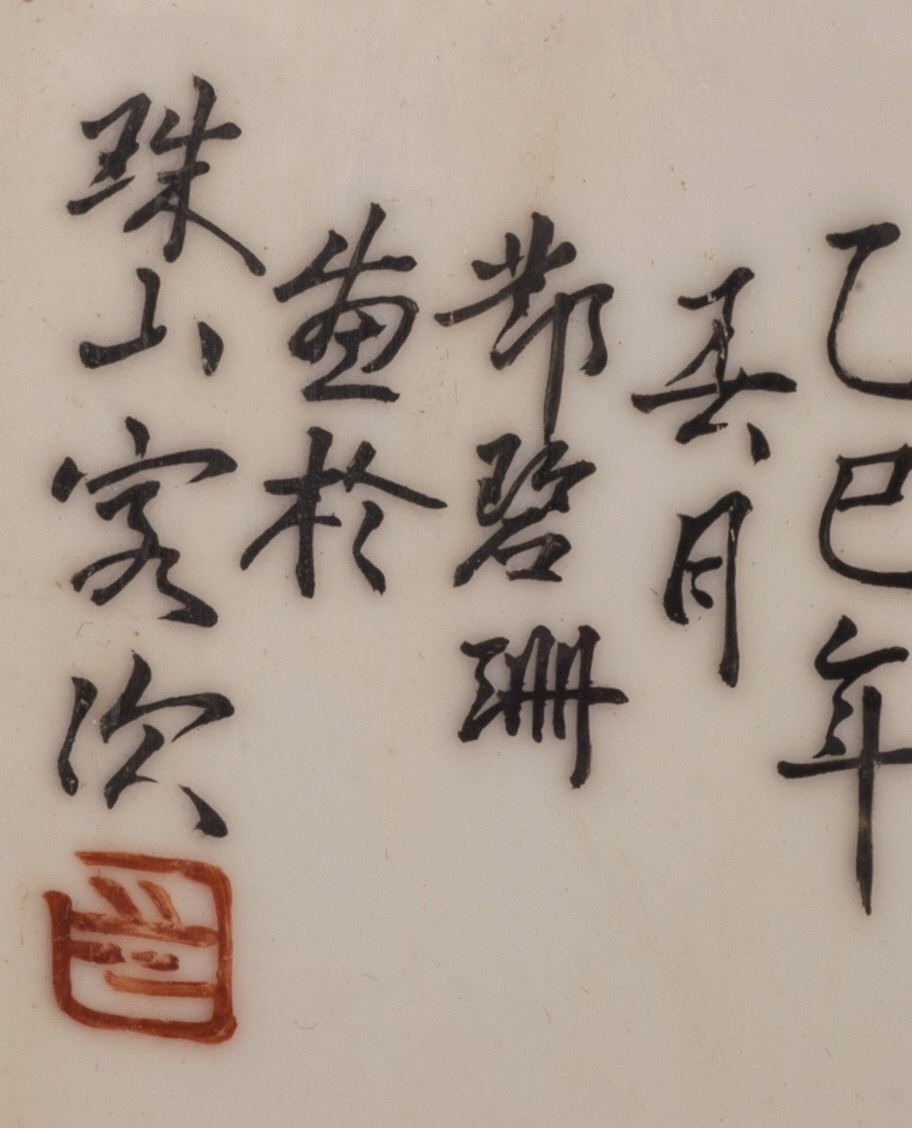 乙巳年
春月
鄧碧珊
畫於
珠山客次